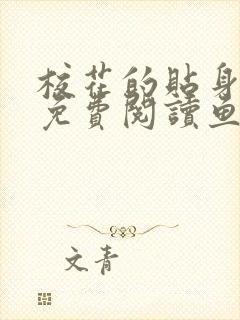 校花的貼身
免費閱讀魚
文青